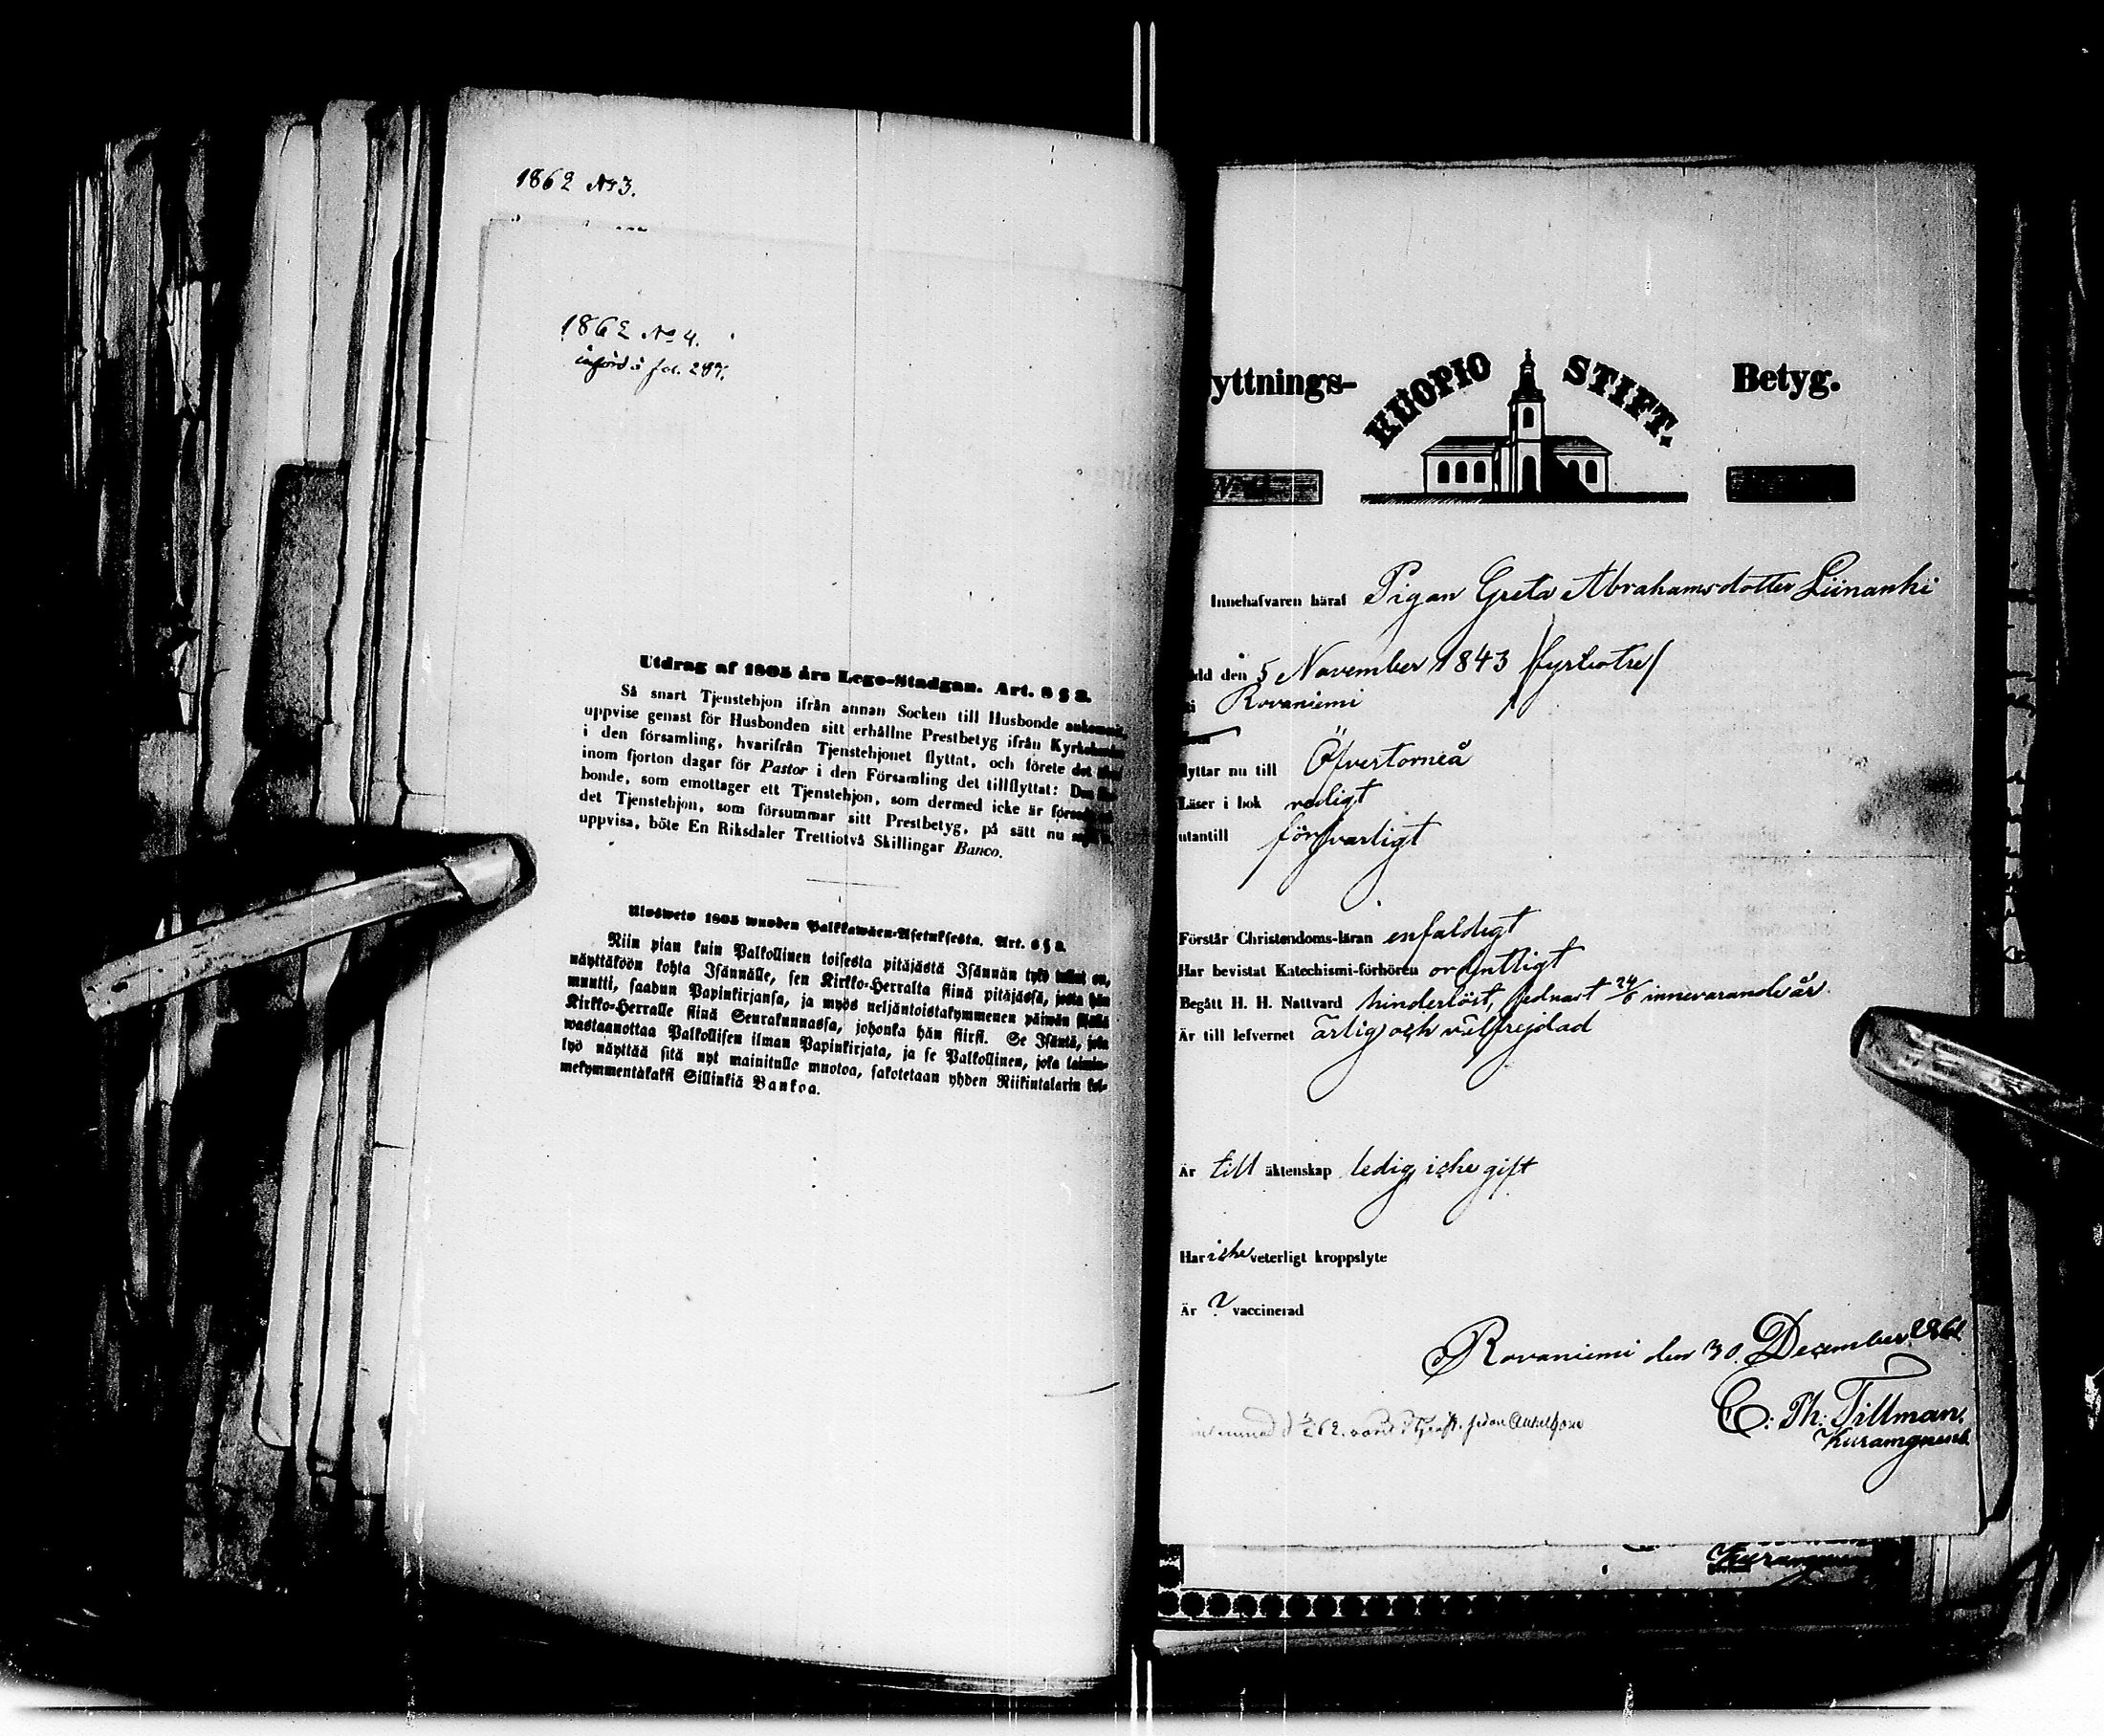 1862 No 3.
1862 No 4.
införd i fol. 287.
Utdrag af 1805 års Lego-Stadgan. Art. 8 § 2.
Så snart Tjenstehjon ifrån annan Socken till Husbonde ankommit,
uppvise genast för Husbonden sitt erhållne Prestbetyg ifrån
i den församling, hvarifrån Tjenstehjonet flyttat, och förete det
inom fjorton dagar för Pastor i den Församling det tillflyttat: Den
bonde, som emottager ett Tjenstehjon, som dermed icke är
det Tjenstehjon, som försummar sitt Prestbetyg, på sätt nu
uppvisa, böte En Riksdaler Trettiotvå Skillingar Banco.
Ulosweto 1805 wuoden Palkkawäen-Asetuksesta. Art. 8 § 2.
Niin pian kuin Palkollinen toisesta pitäjästä Isännän tykö tullut on,
näyttäköön kohta Isännälle, sen Kirkko-Herralta siinä pitäjässä, josta hän
muutti, saadun Papinkirjansa, ja myös neljäntoistakymmenen päiwän
Kirkko-Herralle siinä Seurakunnassa, johonka hän siirsi. Se Isäntä, joka
wastaanottaa Palkollisen ilman Papinkirjata, ja se Palkollinen, joka laimin-
lyö näyttää sitä nyt mainitulle muotoa, sakotetaan yhden Riikintalarin kol-
mekymmentäkaksi Sillinkiä Bankoa.
yttnings- KUOPIO STIFT. Betyg.
Innehafvaren häraf Pigan Greta Abrahamsdotter Liinanki
dd den 5 November 1843 /fyratiotre/
i Rovaniemi
flyttar nu till Öfvertorneå
Läser i bok redigt
utantill försvarligt
Förstår Christendoms-läran enfaldigt
Har bevistat Katechismi-förhören ordentligt
Begått H. H. Nattvard hinderlöst, sednast 24/6 innevarande år
Är till lefvernet ärlig och välfrejdad
Är till äktenskap ledig icke gift
Har icke veterligt kroppslyte
Är ? vaccinerad
Rovaniemi den 30 December 1861.
C. Th: Tillman.